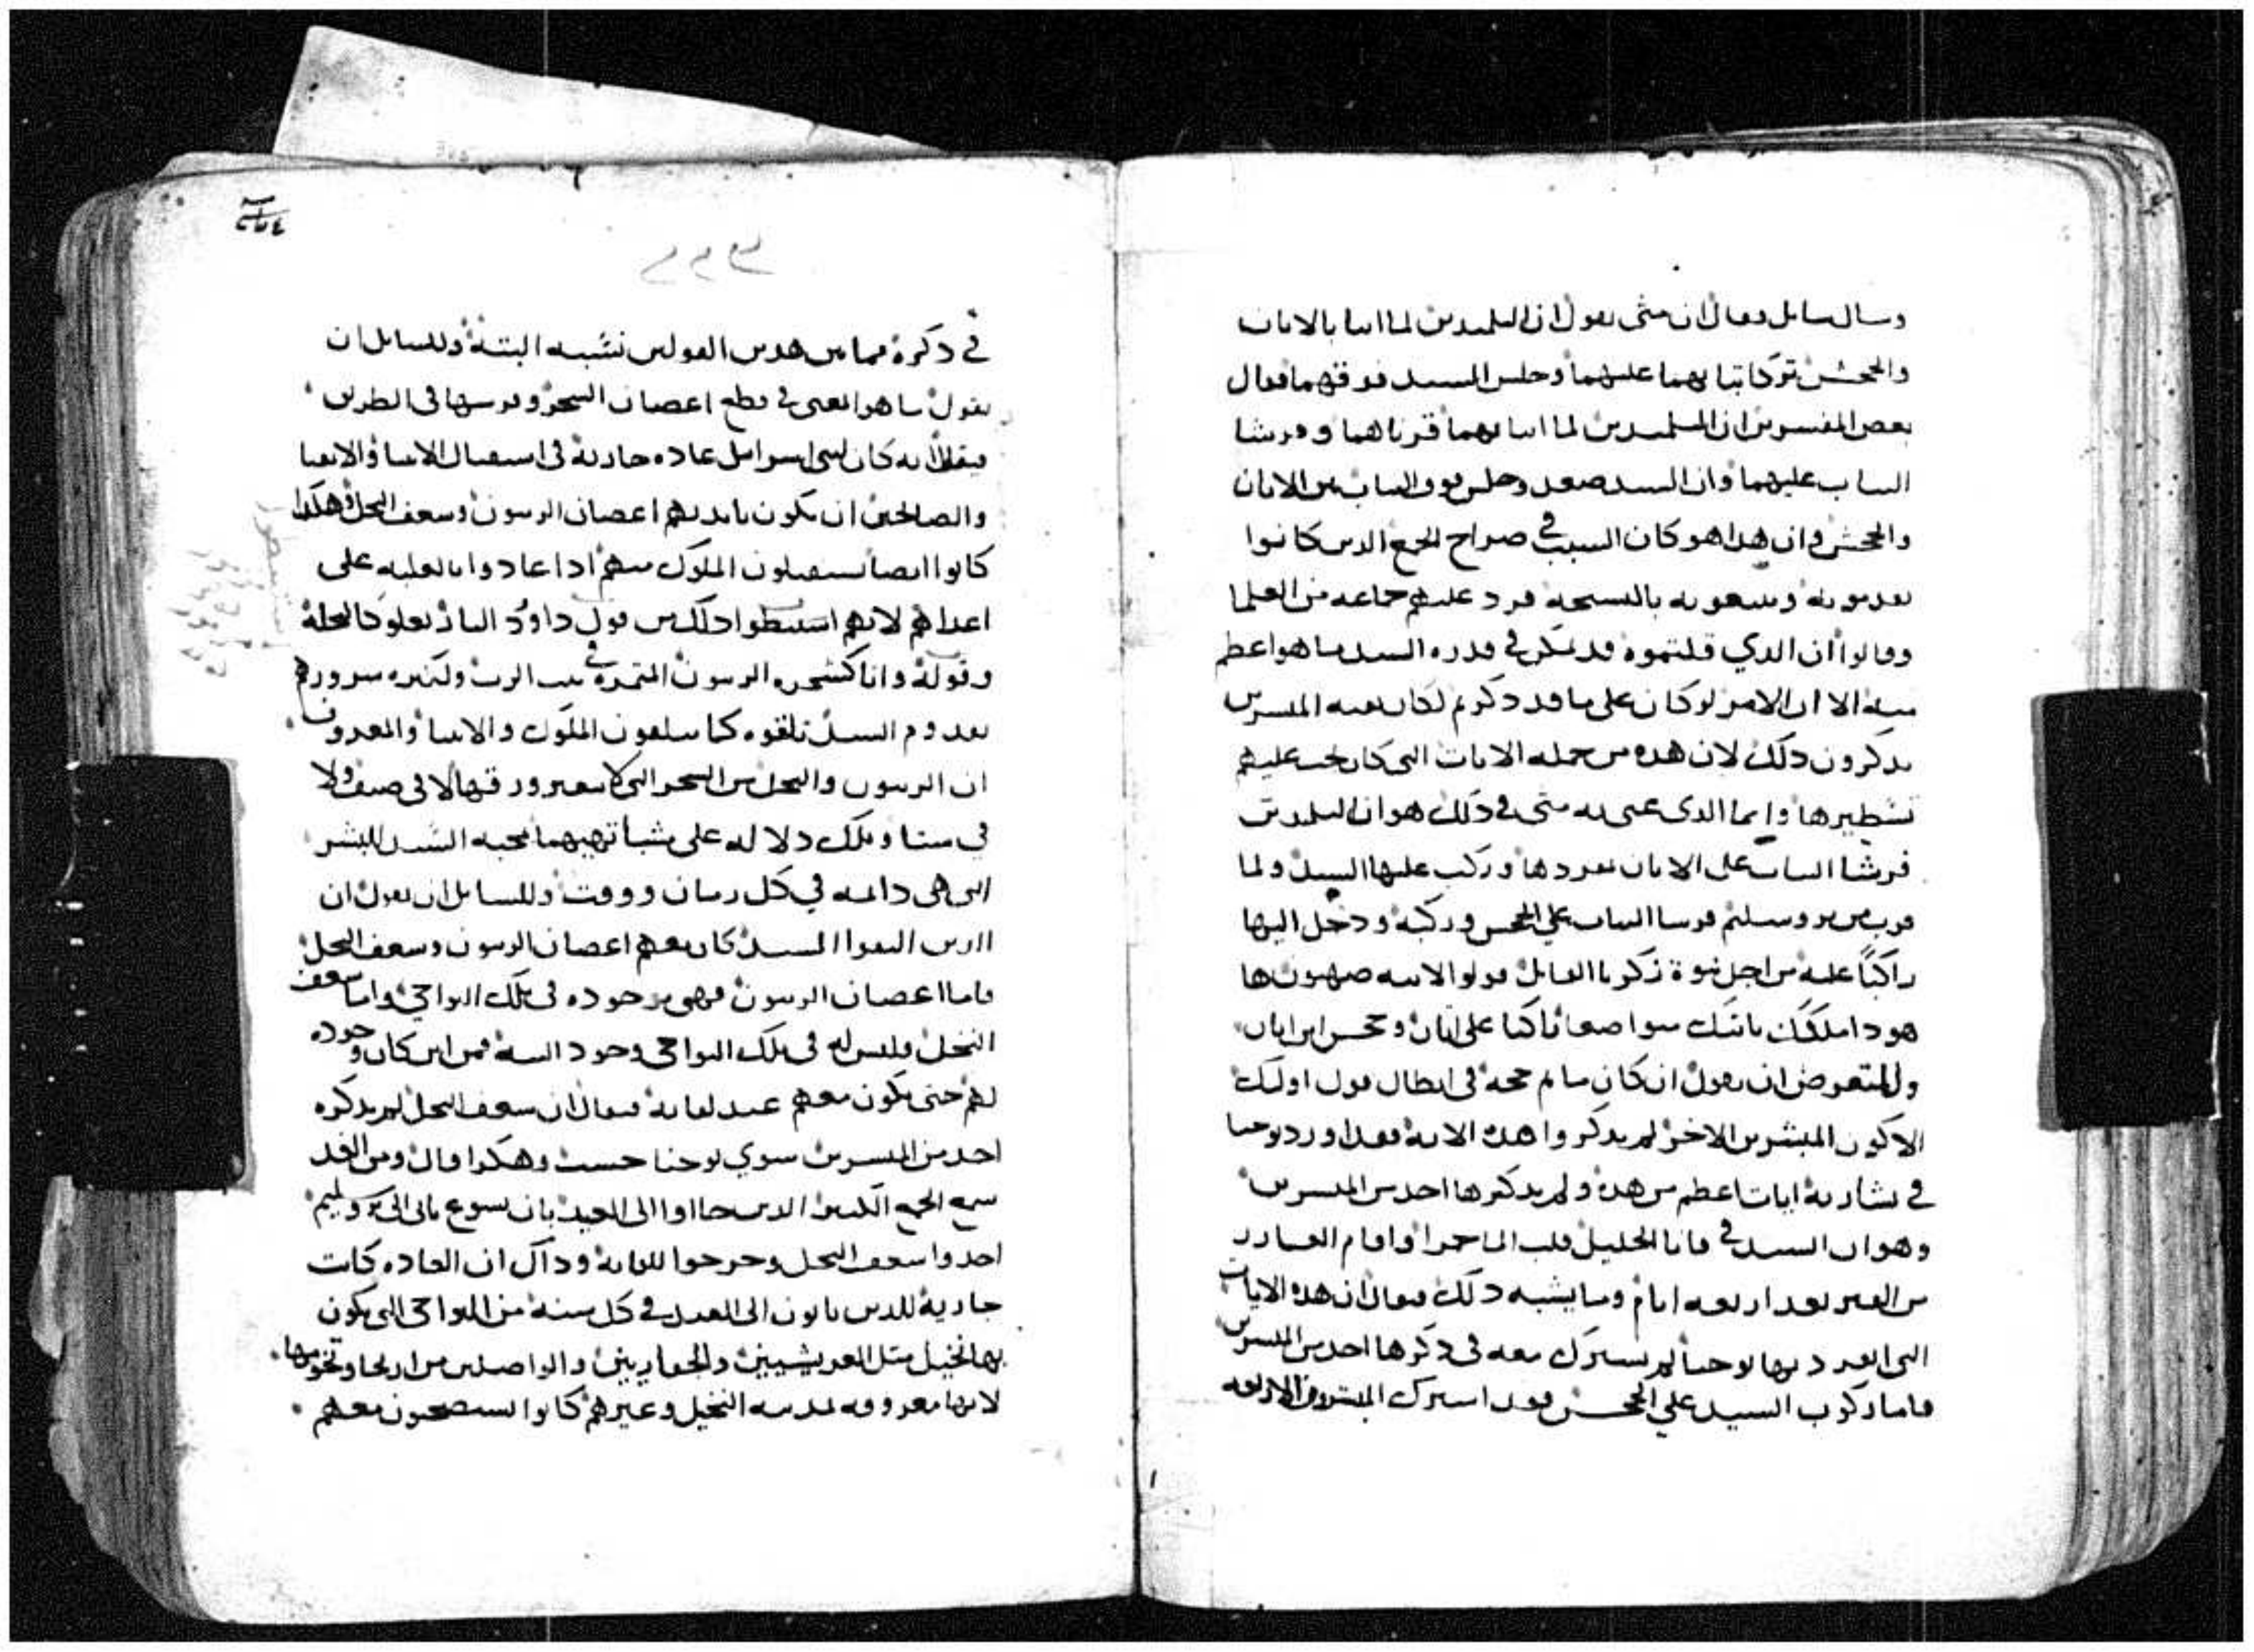 وسال سايل وقال ان متى يقول ان التلميدين لما اتيا بالاتان
والجحش تركا ثيابهما عليهما وجلس السيد فوقهما فقال
بعض المفسرين ان التلميدين لما اتيا بهما قرناهما وفرشا
الثياب عليهما وان السيد صعد وجلس فوق الثياب من الاتان
والجحش وان هدا هو كان السبب في صراح الجمع الدين كانوا
يقدمونه ويتبعونه بالتسبحة فرد عليهم جماعه من العلما
وقالوا ان الدي قلتموه قد يمكن في قدره السيد ما هو اعظم
منه الا ان الامر لو كان على ما قد دكرتم لكان بقيه المبشرين
يدكرون دلك لان هده من جمله الايات التي كان يجب عليهم
تسطيرها وانما الدى عنى به متى في دلك هو ان التلميدين
فرشا الثياب على الاتان بمفردها وركب عليها السيد ولما
قرب من يروسليم فرشا الثياب علي الجحش وركبه ودخل اليها
راكبًا عليه من اجل نبوة زكريا القايل قولوا لابنه صهيون ها
هودا ملكك ياتيك متواضعا راكبا على اتان وجحش ابن اتان
وللمتعرض ان يقول ان كان ما لهم حجه فى ابطال قول اوليك
الا كون المبشرين الاخر لم يدكروا هده الايه فقد اورد يوحنا
في بشارته ايات اعظم من هده ولم يدكرها احد من المبشرين
وهو ان السيد في قانا الجليل قلب الما خمرا واقام العازر
من القبر بعد اربعه ايام وما يشبه دلك فيقال ان هده الايات
التى انفرد بها يوحنا لم يشترك معه فى دكرها احد من المبشرين
فاما ركوب السيد علي الجحش فقد اشترك المبشرون الاربعه
في دكره فما بين هدين القولين نشبه البتة وللسايل ان
يقول ما هو المعنى في قطع اعصان الشجر وفرشها فى الطريق
فيقال انه كان لبني اسراييل عاده جاريه فى استقبال الانبيا والاتقيا
والصالحين ان يكون بايديهم اعصان الزيتون وسعف النخل وهكدا
كانوا ايضا يستقبلون الملوك منهم ادا عادوا بالغلبه على
اعداهم لانهم استنبطوا دلك من قول داوود البار يعلو كالنخلة
وقوله وانا كشجره الزيتون المتمرة في بيت الرب ولكثره سرورهم
بقدوم السيد تلقوه كما يتلقون الملوك والانبيا والمعروف
ان الزيتون والنخل من الشجر التي لا يتغير ورقها لا فى صيف ولا
في شتا وتلك دلاله على مشابهتهما محبه السيد للبشر
التى هى دايمه في كل زمان ووقت وللسايل ان يقول ان
الدين التقوا المسيح كان معهم اعصان الزيتون وسعف النخل
فاما اعصان الزيتون فهى موجوده فى تلك النواحي واما سعف
النخل فليس له فى تلك النواحى وجود البتة فمن اين كان وجوده
لهم حتى يكون معهم عند لقايه فيقال ان سعف النخل لم يدكره
احد من المبشرين سوي يوحنا حسب وهكدا قال ومن الغد
سمع الجمع الكبير الدين جااوا الى العيد بان يسوع ياتى الى يروسليم
اخدوا سعف النخل وخرجوا للقايه وداك ان العاده كانت
جارية للدين ياتون الى العيد في كل سنة من النواحى التى يكون
بها نخيل متل العريشيين والجفاريين والواصلين من اريحا وتخومها
لانها معروفه بمدينه النخيل وغيرهم كانوا يستصحبون معهم